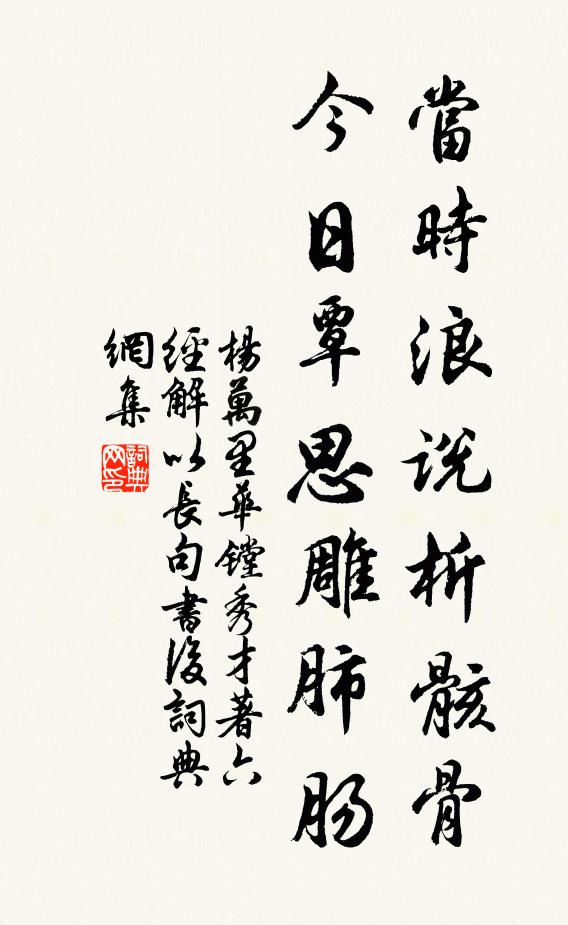 當時浪说析骸骨
今日覃思雕肺肠
楊萬里華鏜秀才著六
經解以長句書後詞典
網集
詞典
网印